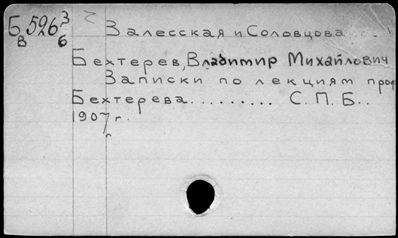 Б 526 3/6
В
Залесская и Соловцова
Бехтерев, Владимир Михайлович
Записки по лекциям проф
Бехтерева......... С.П.Б..
1907 г.